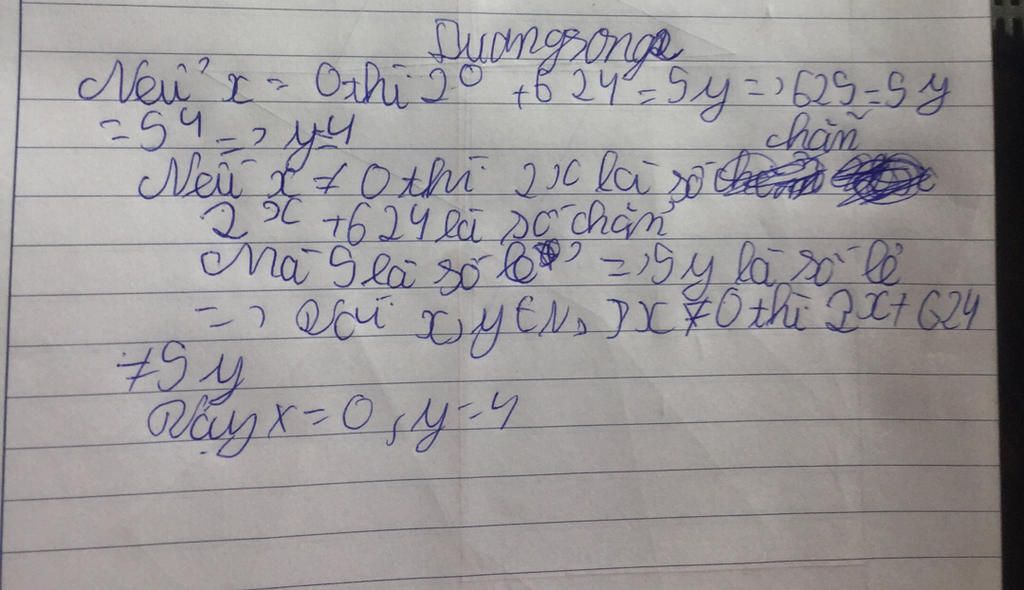 Duangsong
Nếu x = 0 thì 2⁰ + 624 = 5y => 625 = 5y
= 5⁴ => y=4
chẵn
Nếu x ≠ 0 thì 2x là số
2ˣ + 624 là số chẵn
Mà 5 là số lẻ => 5y là số lẻ
=> Với x, y ∈ N, x ≠ 0 thì 2x + 624
≠ 5y
Vậy x = 0, y = 4